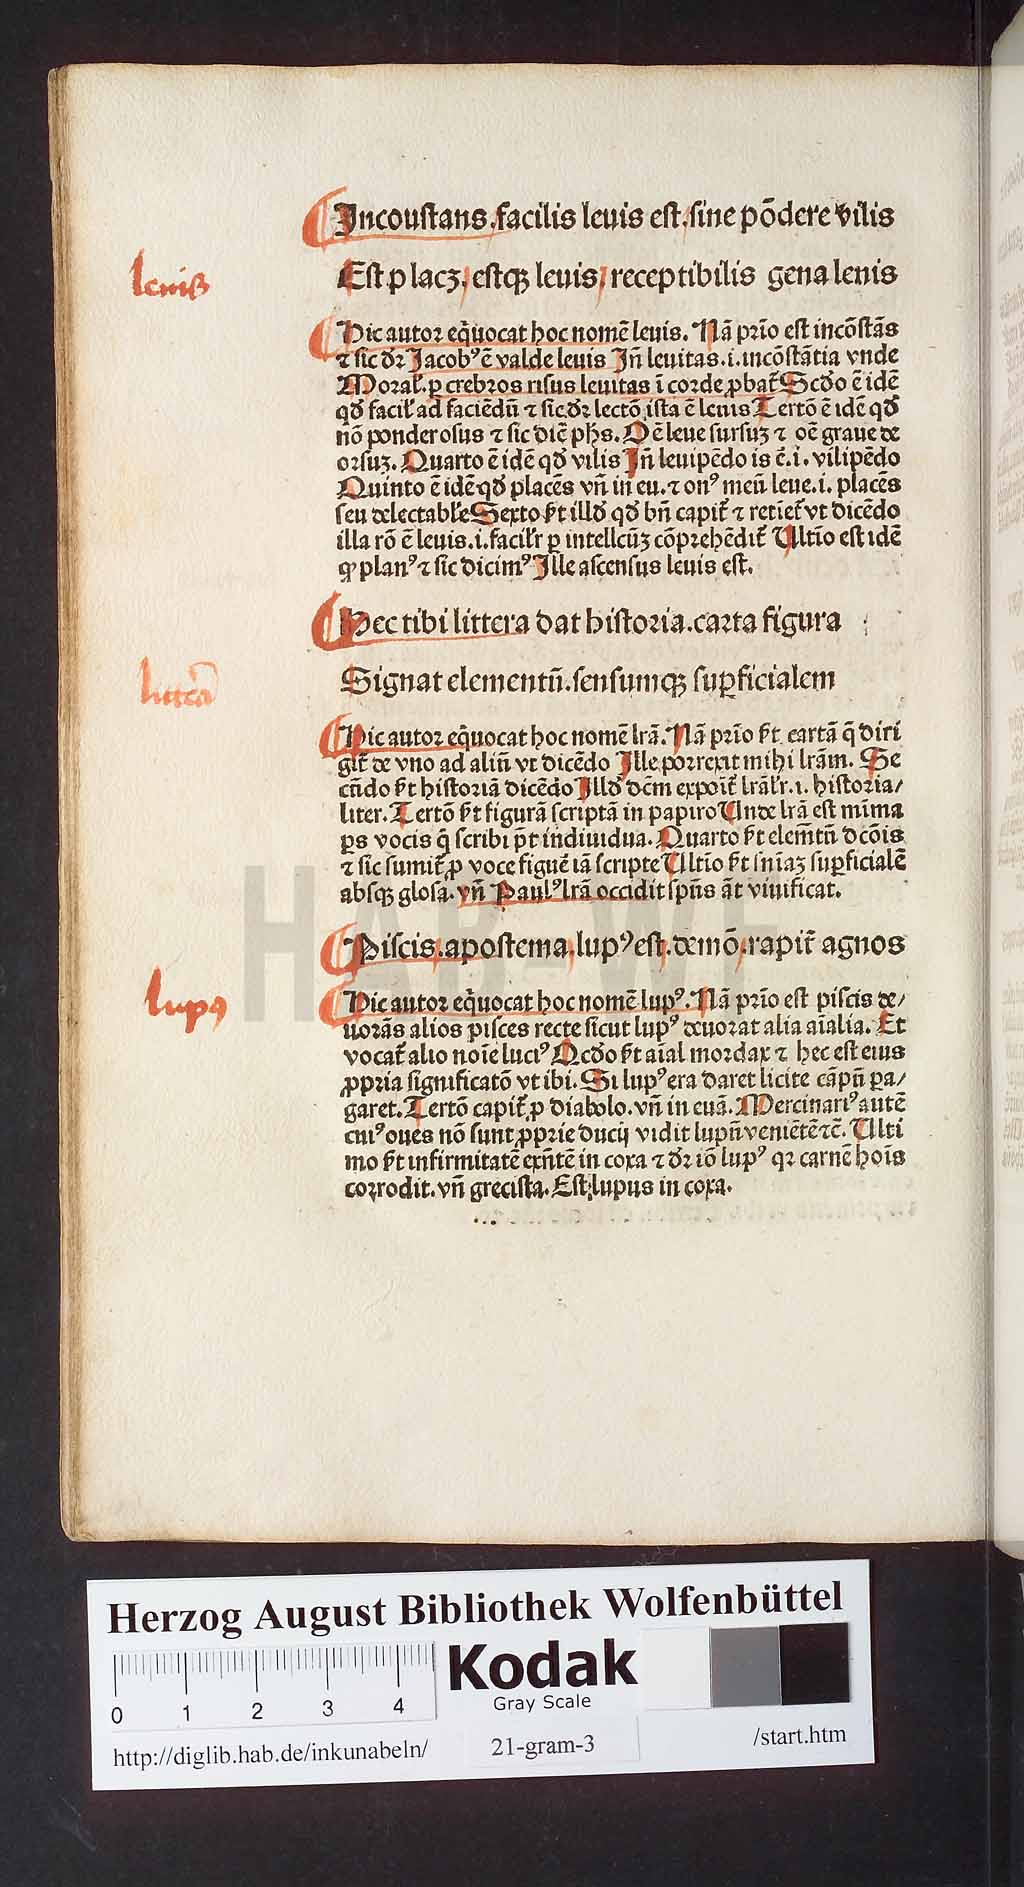 Incoustans.facilis leuis est.sine põdere vilis
leuis
Est p lacꝫ.estqꝫ leuis/receptibilis gena lenis
Hic autor eq̃uocat hoc nomẽ leuis. Nã prĩo est incõstãs
⁊ sic dr̃ Jacobꝰ ẽ valde leuis Jñ leuitas.i.incõstãtia vnde
Moral̃.p crebros risus leuitas ĩ corde ꝓbat̃ Scdo ẽ idẽ
qd̃ facil̃ ad faciẽdũ ⁊ sic dr̃ lectõ ista ẽ leuis Tertõ ẽ idẽ qd̃
nõ ponderosus ⁊ sic diẽ phs. Oẽ leue sursuꝫ ⁊ oẽ graue de
orsuꝫ. Quarto ẽ idẽ qd̃ vilis Jñ leuipẽdo is ẽ.i.vilipẽdo
Quinto ẽ idẽ qd̃ placẽs vñ in eu.⁊ onꝰ meũ leue.i.placẽs
seu delectabl̃e Sexto s̃t illd̃ qd̃ bñ capit̃ ⁊ retiet̃ vt dicẽdo
illa rõ ẽ leuis.i.facil̃r p intellcũꝫ cõprehẽdit̃ Vltĩo est idẽ
ꝙ planꝰ ⁊ sic dicimꝰ Ille ascensus leuis est.
Hec tibi littera dat historia.carta figura
littera
Signat elementũ.sensumqꝫ suꝑficialem
Hic autor eq̃uocat hoc nomẽ lrã. Nã prĩo s̃t cartã q̃ diri
git̃ de vno ad aliũ vt dicẽdo Ille porrexit mihi lrãm. Se
cũdo s̃t historiã dicẽdo Illd̃ dcm̃ expoit̃ lrãl̃r.i. historia/
liter. Tertõ s̃t figurã scriptã in papiro Vnde lrã est mĩma
ꝑs vocis q̃ scribi põt indiuidua. Quarto s̃t elemẽtũ dcõis
⁊ sic sumit̃ ꝓ voce figure iã scripte Vltĩo s̃t sñiaꝫ suꝑficialẽ
absqꝫ glosa. vñ Paulꝰ lrã occidit spũs ãt viuificat.
Piscis.apostema.lupꝰ est.demõ.rapit̃ agnos
lupꝰ
Hic autor eq̃uocat hoc nomẽ lupꝰ. Nã prĩo est piscis de/
uorãs alios pisces recte sicut lupꝰ deuorat alia aĩalia. Et
vocat̃ alio noĩe luciꝰ Scdo s̃t aĩal mordax ⁊ hec est eius
ꝓpria significatõ vt ibi. Si lupꝰ era daret licite cãpũ ꝑa/
garet. Tertõ capit̃ ꝓ diabolo.vñ in euã. Mercinariꝰ autẽ
cuiꝰ oues nõ sunt ꝓprie ducij vidit lupũ veniẽtẽ ⁊c̃. Vlti
mo s̃t infirmitatẽ exñtẽ in coxa ⁊ dr̃ iõ lupꝰ qꝛ carnẽ hoĩs
corrodit.vñ grecista. Est lupus in coxa.
HAB-WF
Herzog August Bibliothek Wolfenbüttel
0 1 2 3 4
Kodak
Gray Scale
http://diglib.hab.de/inkunabeln/ 21-gram-3 /start.htm